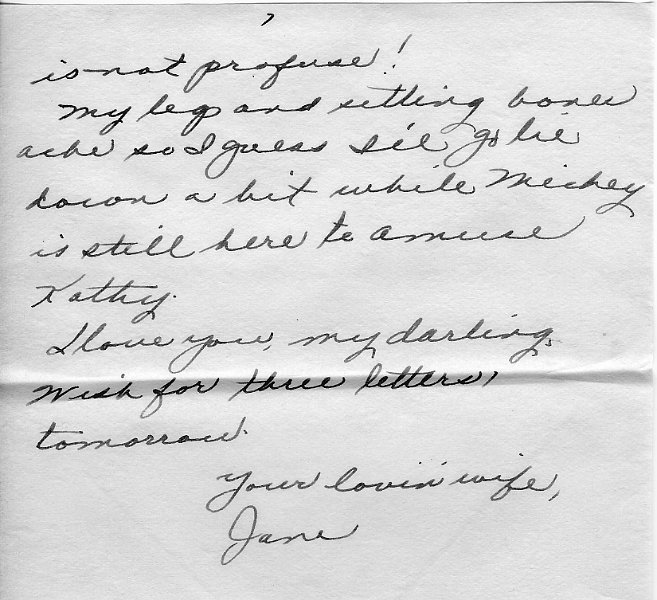 is not profuse!
My leg and sitting bones
ache so I guess I'll go lie
down a bit while Mickey
is still here to amuse
Kathy.
I love you, my darling.
Wish for three letters,
tomorrow.
Your lovin' wife,
Jane